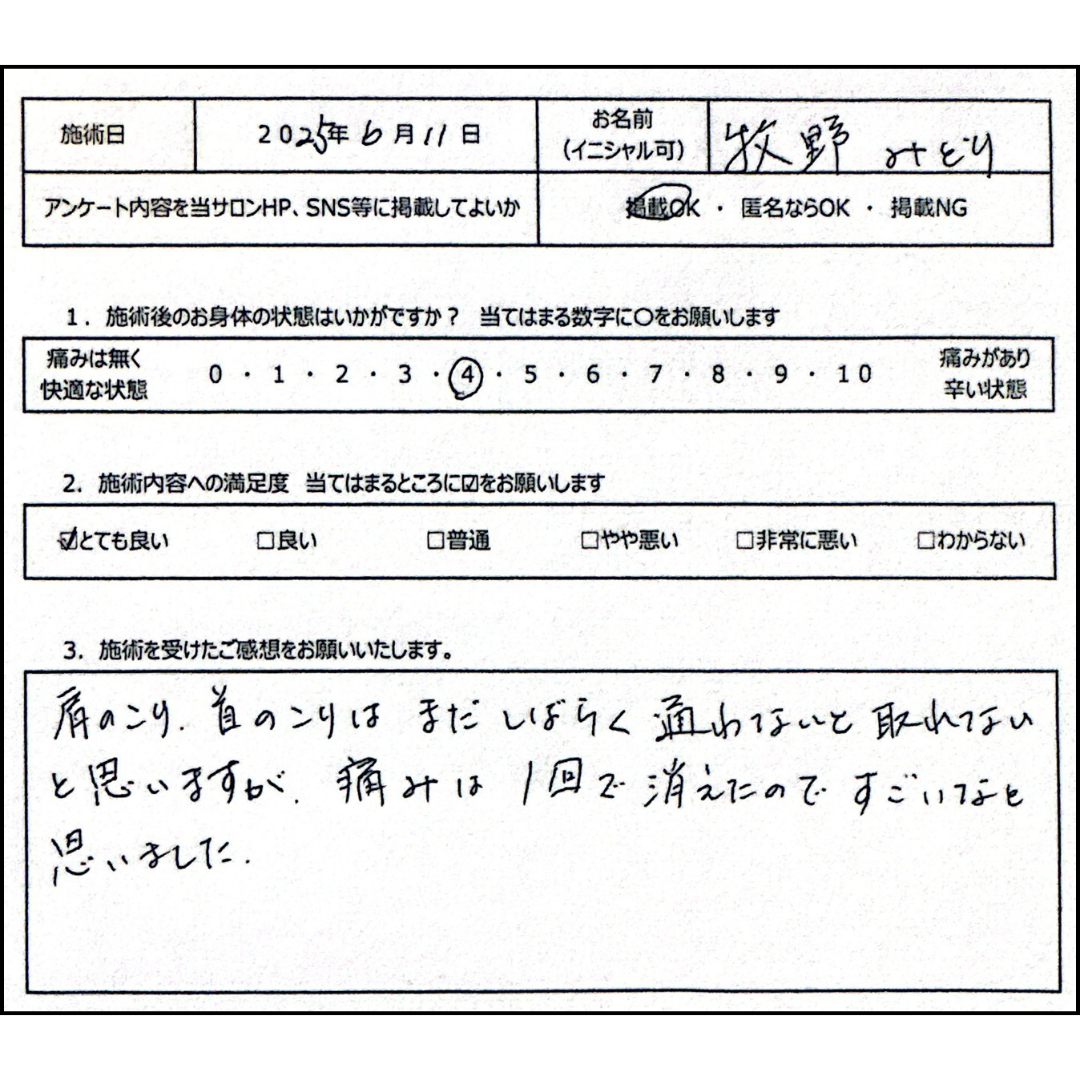 施術日 2025年6月11日 お名前 (イニシャル可) 牧野 みどり
アンケート内容を当サロンHP、SNS等に掲載してよいか 掲載OK ・ 匿名ならOK ・ 掲載NG
1. 施術後のお身体の状態はいかがですか？ 当てはまる数字に〇をお願いします
痛みは無く 快適な状態 0 ・ 1 ・ 2 ・ 3 ・ 4 ・ 5 ・ 6 ・ 7 ・ 8 ・ 9 ・ 10 痛みがあり 辛い状態
2. 施術内容への満足度 当てはまるところに☑をお願いします
☑とても良い □良い □普通 □やや悪い □非常に悪い □わからない
3. 施術を受けたご感想をお願いいたします。
肩のこり、首のこりは まだ しばらく 通わてないと 取れてない
と思いますが、痛みは 1回で 消えたので すごいなと
思いました.